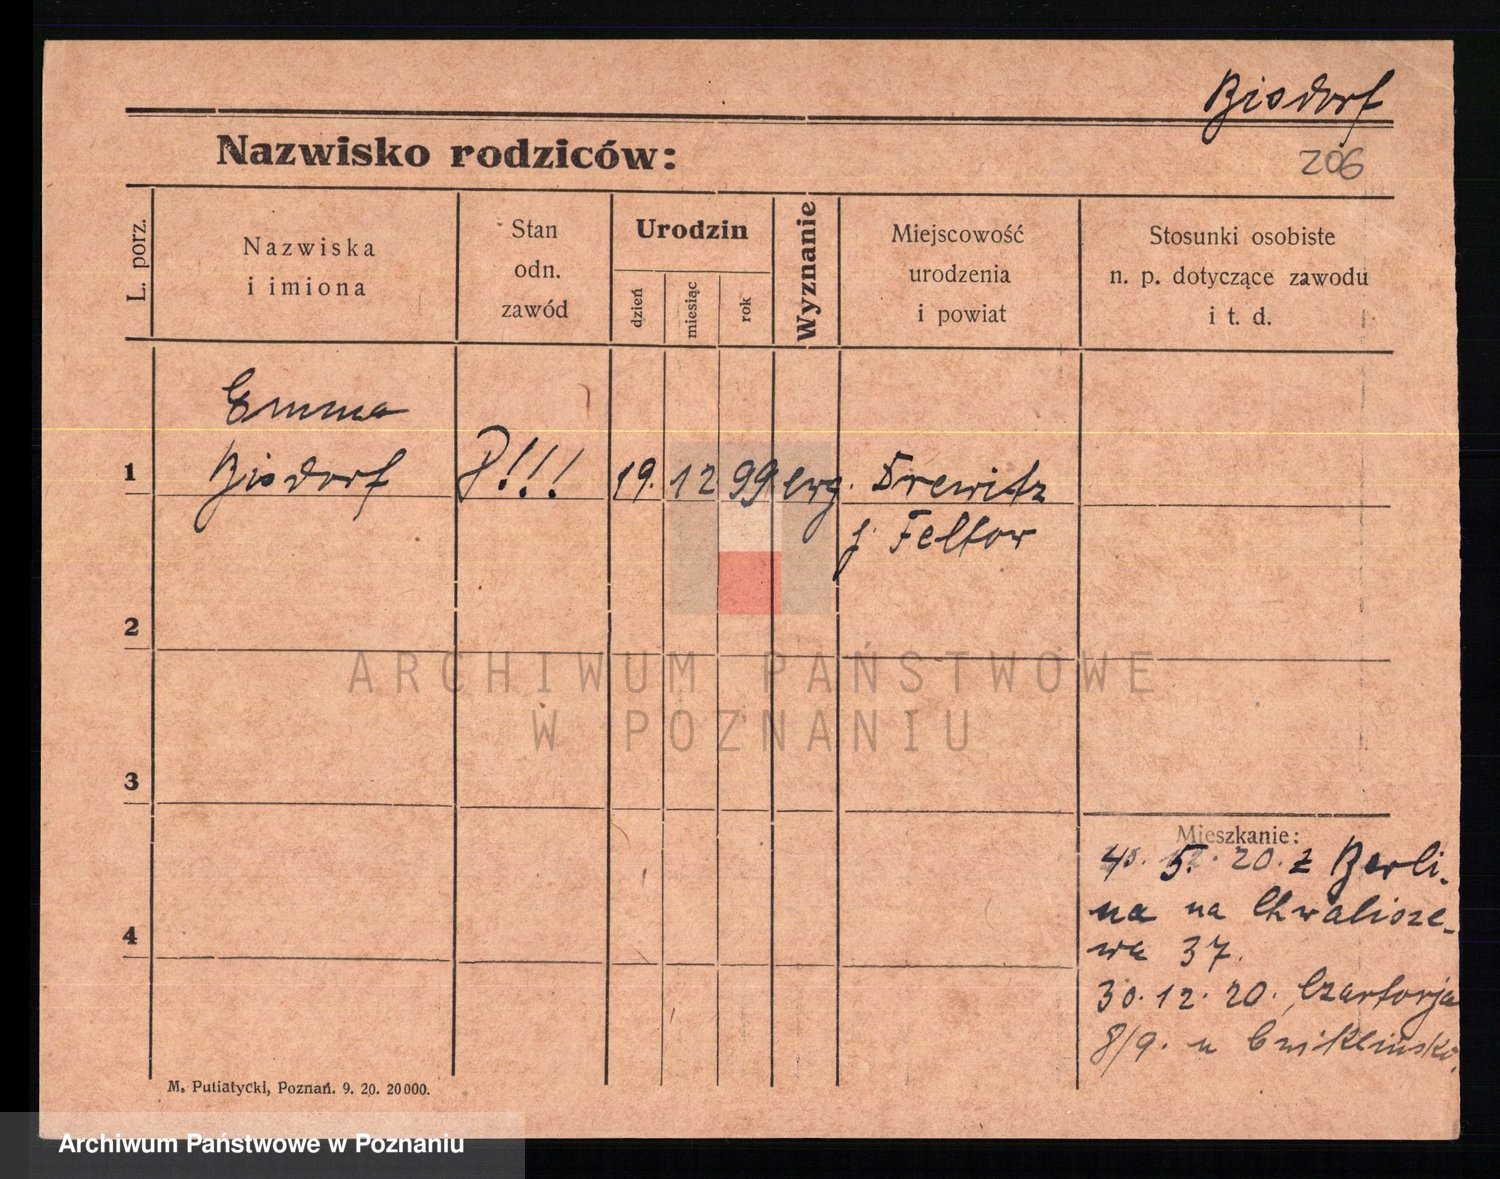 Bisdorf
Nazwisko rodziców:
206
L. porz.
Nazwiska
i imiona
Stan
odn.
zawód
Urodzin
dzień
miesiąc
rok
Wyznanie
Miejscowość
urodzenia
i powiat
Stosunki osobiste
n. p. dotyczące zawodu
i t. d.
Emma
1 Bisdorf P!!! 19. 12 99 erg. Drewitz
j. Teltow
2
ARCHIWUM PAŃSTWOWE
W POZNANIU
3
Mieszkanie:
5. 20. z Berli-
na na Chwalisze-
wa 37.
4
30. 12. 20. Czartorja
8/9. u
M. Putiatycki, Poznań. 9. 20. 20000.
Archiwum Państwowe w Poznaniu